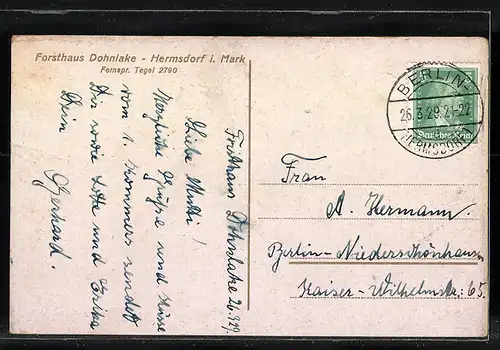 Forsthaus Dohnlake - Hermsdorf i. Mark
Fernspr. Tegel 2790
Forsthaus Dohnlake 26.3.29.
Liebe Mutti!
Herzliche Grüße und Küsse
vom 1. sendet
Dir sowie Lotte und Erika
Dein
Gerhard.
BERLIN-
26.3.29.21-22
HERMSDORF
Deutsches Reich
Frau
A. Hermann.
Berlin-Niederschönhausen
Kaiser-Wilhelmstr: 65.